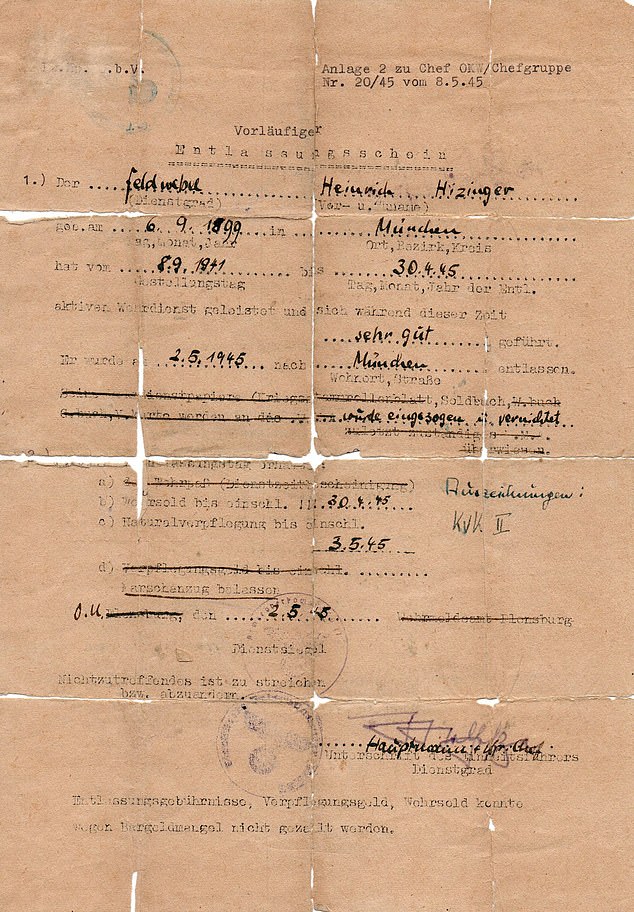 .b.V.
Anlage 2 zu Chef OKW/Chefgruppe
Nr. 20/45 vom 8.5.45
Vorläufiger
Entlassungsschein
1.) Der ....Feldwebel.... Heinrich Hizinger
(Dienstgrad) (Vor- u. Zuname)
geb.am ....6. 9. 1899.... in ....München....
Tag,Monat,Jahr Ort,Bezirk,Kreis
hat vom ....8.9. 1941.... bis ....30.4.45....
Gestellungstag Tag,Monat,Jahr der Entl.
aktiven Wehrdienst geleistet und sich während dieser Zeit
....sehr gut.... geführt.
Er wurde a ....2.5.1945.... nach ....München.... entlassen.
Wohnort, Straße
Soldbuch, W.buch
werden an das wurde eingezogen u. vernichtet
überwiesen.
a) Wehrpaß (Dienstzeitbescheinigung)
Auszeichnungen:
b) Wehrsold bis einschl. ...30.4.45
KVK II
c) Naturalverpflegung bis einschl.
3.5.45
d) Verpflegungsgeld bis einschl. .........
Marschanzug belassen
O.U. Flensburg, den ....2.5.45.... Wehrmeldeamt Flensburg
Dienstsiegel
Nichtzutreffendes ist zu streichen
bzw. abzuändern.
Hauptmann u.
Unterschrift des Einheitsführers
Dienstgrad
Entlassungsgebührnisse, Verpflegungsgeld, Wehrsold konnte
wegen Bargeldmangel nicht gezahlt werden.